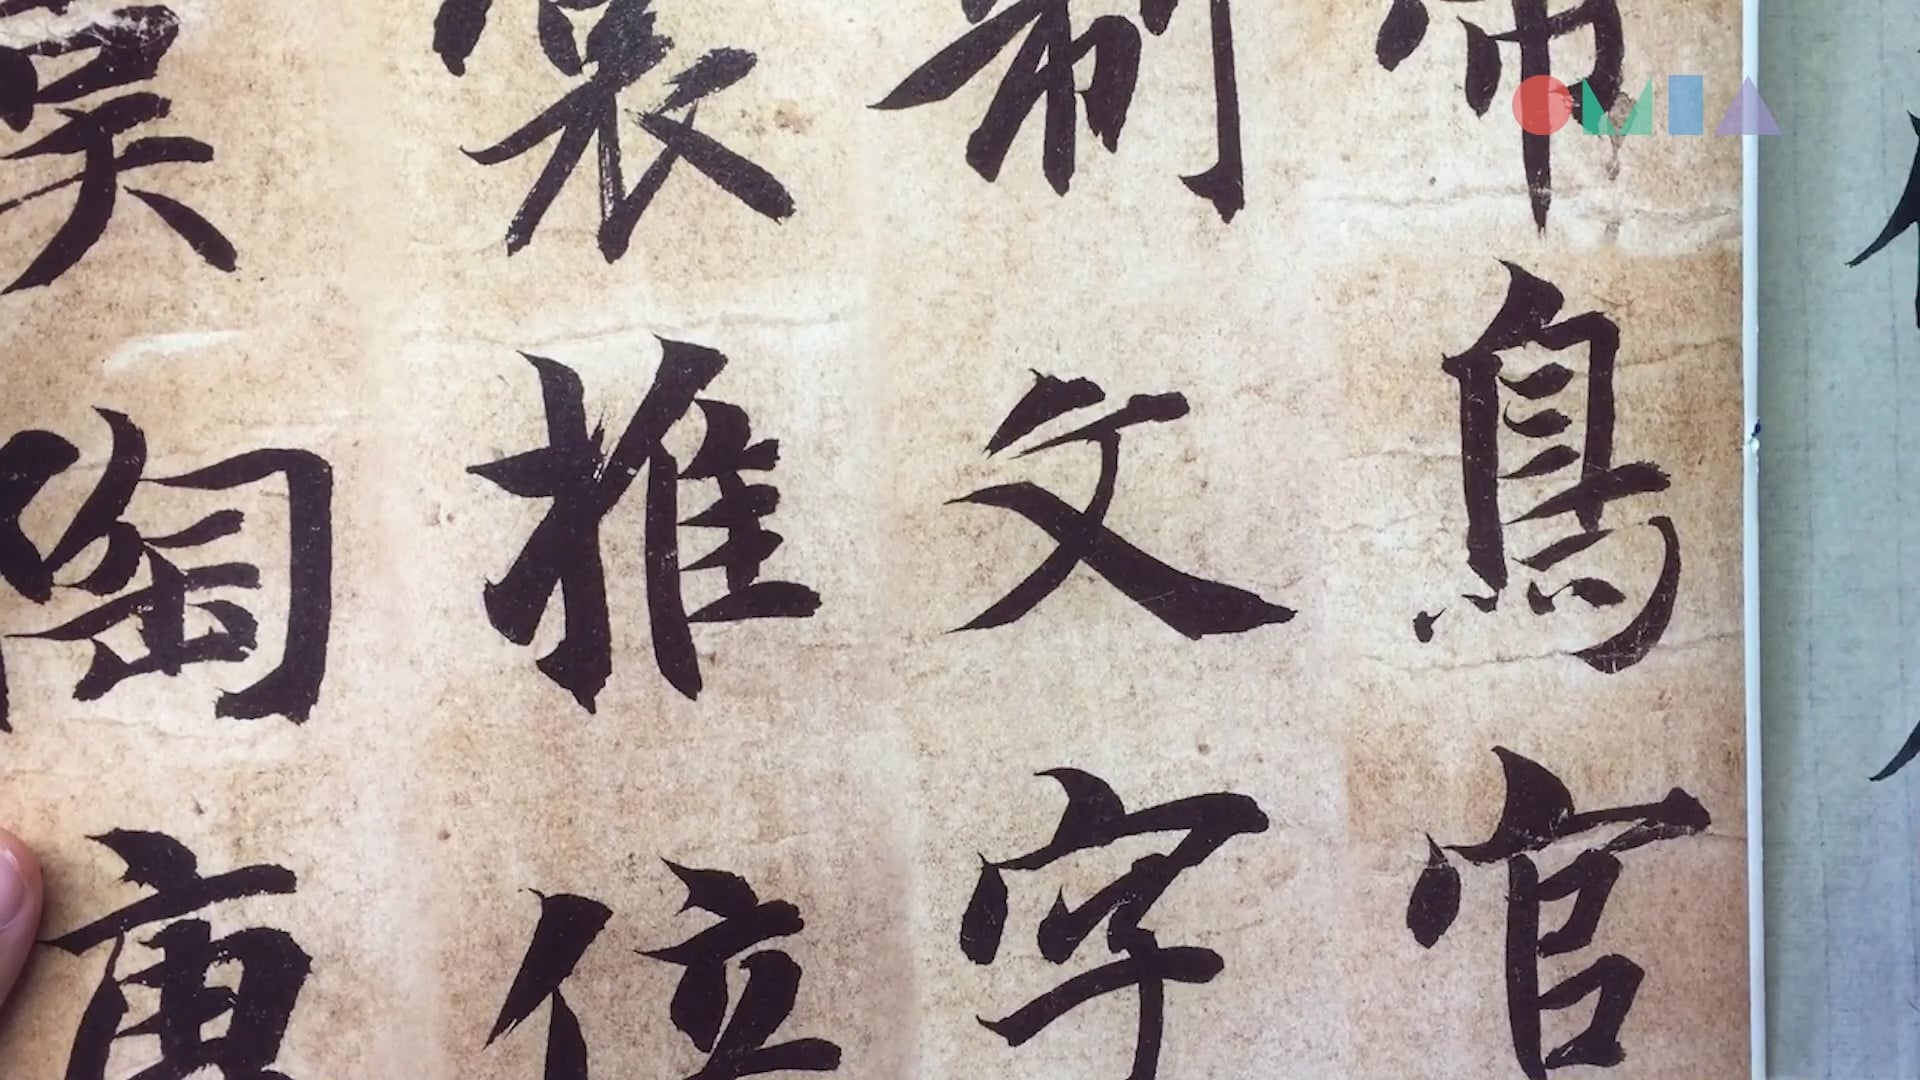 帝鳥官
制文字
裳推位
虞陶唐
OMIA